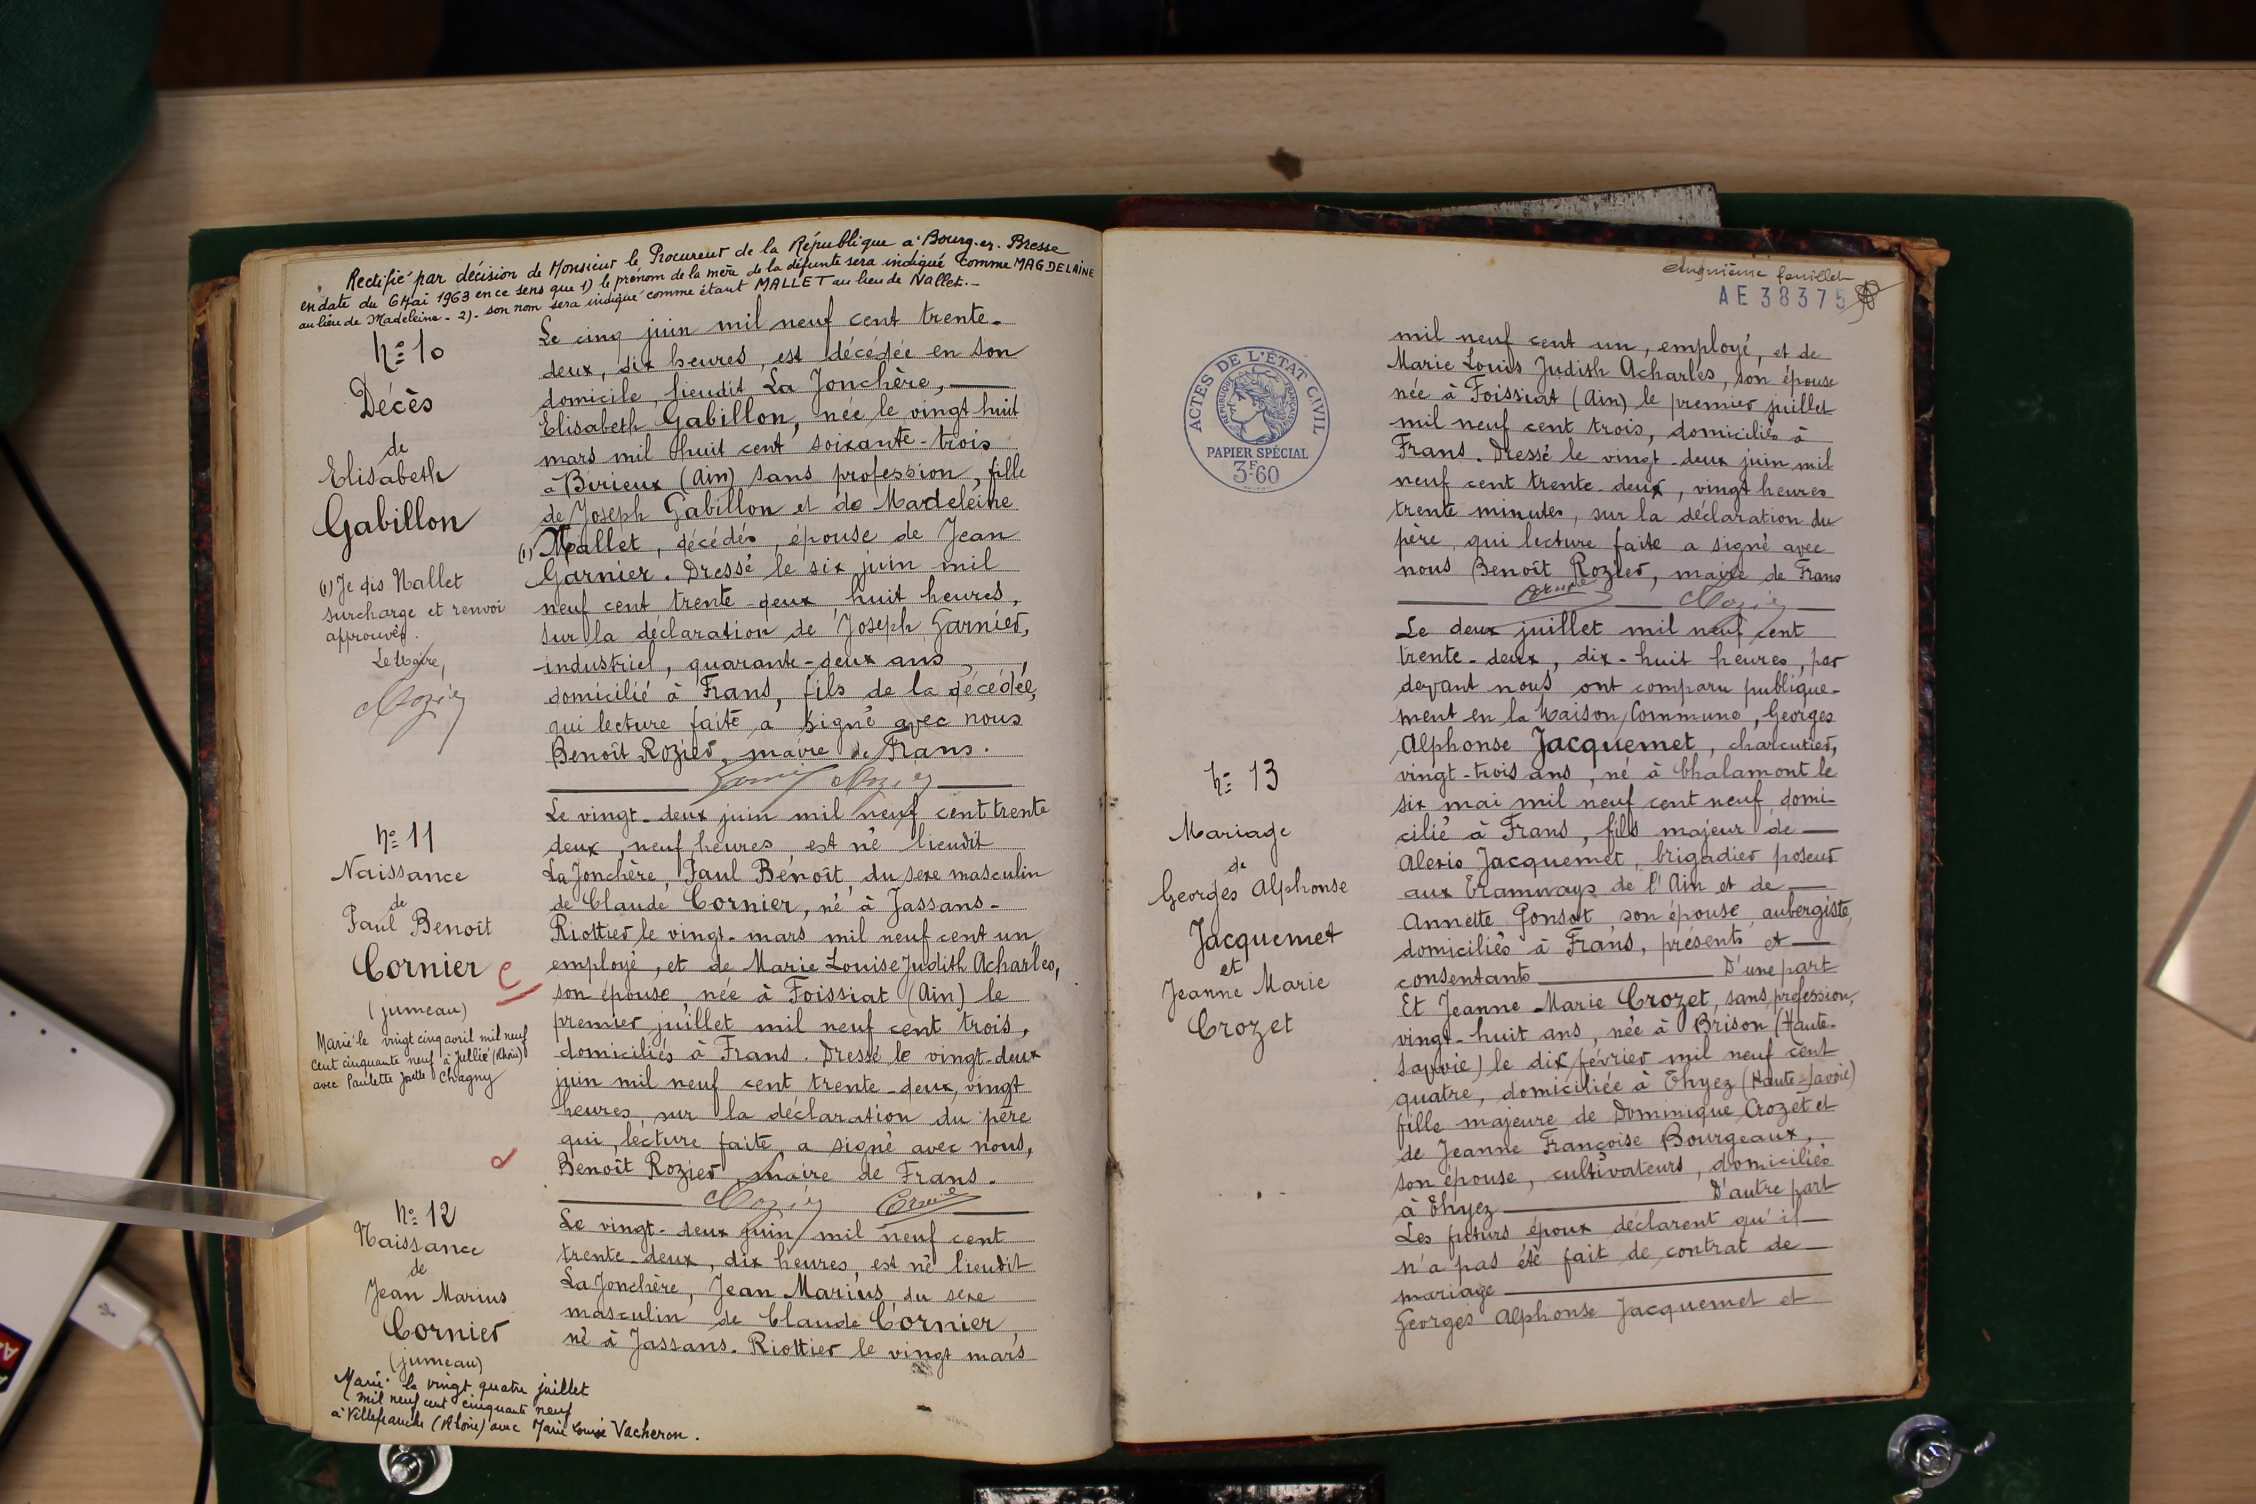 Rectifié par décision de Monsieur le Procureur de la République à Bourg-en-Bresse
en date du 6 Mai 1963 en ce sens que 1) le prénom de la mère de la défunte sera indiqué comme MAGDELAINE
au lieu de Madeleine - 2) - son nom sera indiqué comme étant MALLET au lieu de Nallet.-
N° 10
Décès
de
Elisabeth
Gabillon
(1) Je dis Nallet
surcharge et renvoi
approuvés.
Le Maire,
Rozier
Le cinq juin mil neuf cent trente-
deux, dix heures, est décédée en son
domicile, lieudit La Jonchère,
Elisabeth Gabillon, née le vingt huit
mars mil huit cent soixante-trois
à Birieux (Ain) sans profession, fille
de Joseph Gabillon et de Madeleine
(1) Mallet, décédés, épouse de Jean
Garnier. Dressé le six juin mil
neuf cent trente-deux huit heures,
sur la déclaration de Joseph Garnier,
industriel, quarante-deux ans,
domicilié à Frans, fils de la décédée,
qui lecture faite a signé avec nous
Benoît Rozier, maire de Frans.
Rozier
N° 11
Naissance
de
Paul Benoît
Cornier
(jumeau)
Marié le vingt cinq avril mil neuf
cent cinquante neuf à Jullié (Rhône)
avec Paulette Chagny
Le vingt-deux juin mil neuf cent trente
deux, neuf heures, est né lieudit
La Jonchère, Paul Benoît, du sexe masculin
de Claude Cornier, né à Jassans-
Riottier le vingt-mars mil neuf cent un,
employé, et de Marie Louise Judith Acharles,
son épouse, née à Foissiat (Ain) le
premier juillet mil neuf cent trois,
domiciliés à Frans. Dressé le vingt-deux
juin mil neuf cent trente-deux, vingt
heures, sur la déclaration du père
qui, lecture faite, a signé avec nous,
Benoît Rozier, maire de Frans.
Rozier
N° 12
Naissance
de
Jean Marius
Cornier
(jumeau)
Marié le vingt quatre juillet
mil neuf cent cinquante neuf
à Villefranche (Rhône) avec Marie Louise Vacheron.
Le vingt-deux juin mil neuf cent
trente-deux, dix heures, est né lieudit
La Jonchère, Jean Marius, du sexe
masculin de Claude Cornier,
né à Jassans-Riottier le vingt mars
cinquième feuillet
AE 38375
ACTES DE L'ÉTAT CIVIL
RÉPUBLIQUE FRANÇAISE
PAPIER SPÉCIAL
3F60
mil neuf cent un, employé, et de
Marie Louis Judith Acharles, son épouse
née à Foissiat (Ain) le premier juillet
mil neuf cent trois, domiciliés à
Frans. Dressé le vingt-deux juin mil
neuf cent trente-deux, vingt heures
trente minutes, sur la déclaration du
père, qui lecture faite a signé avec
nous Benoît Rozier, maire de Frans
Rozier
N° 13
Mariage
de
Georges Alphonse
Jacquemet
et
Jeanne Marie
Crozet
Le deux juillet mil neuf cent
trente-deux, dix-huit heures, par
devant nous ont comparu publique-
ment en la Maison Commune, Georges
Alphonse Jacquemet, charcutier,
vingt-trois ans, né à Chalamont le
six mai mil neuf cent neuf domi-
cilié à Frans, fils majeur de
Alexis Jacquemet, brigadier poseur
aux Tramways de l'Ain et de
Annette Gonsot, son épouse, aubergiste,
domiciliés à Frans, présents et
consentants D'une part
Et Jeanne-Marie Crozet, sans profession,
vingt-huit ans, née à Brison (Haute-
Savoie) le dix février mil neuf cent
quatre, domiciliée à Thyez (Haute-Savoie)
fille majeure de Dominique Crozet et
de Jeanne Françoise Bourgeaux,
son épouse, cultivateurs, domiciliés
à Thyez D'autre part
Les futurs époux déclarent qu'il
n'a pas été fait de contrat de
mariage
Georges Alphonse Jacquemet et